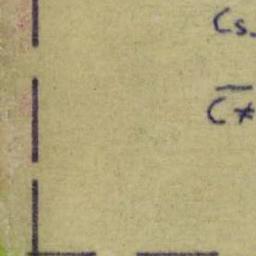 Cs.
C̅≠